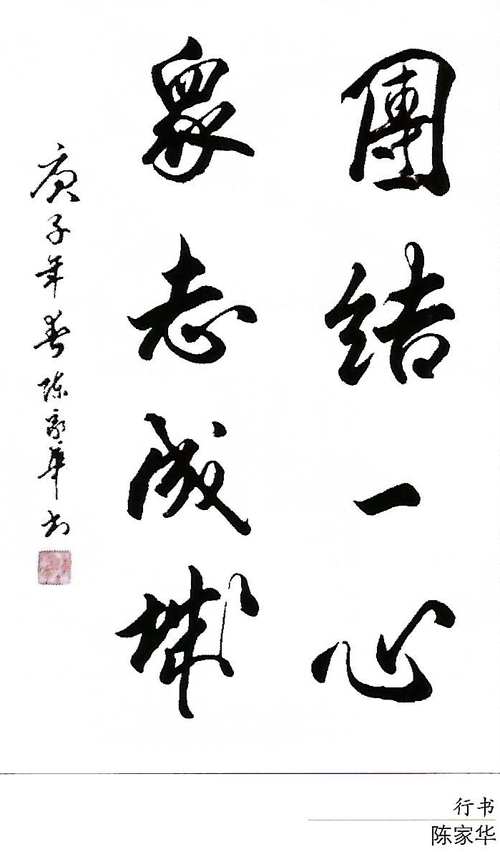 團结一心
衆志成城
庚子年春陈家华书
行书
陈家华